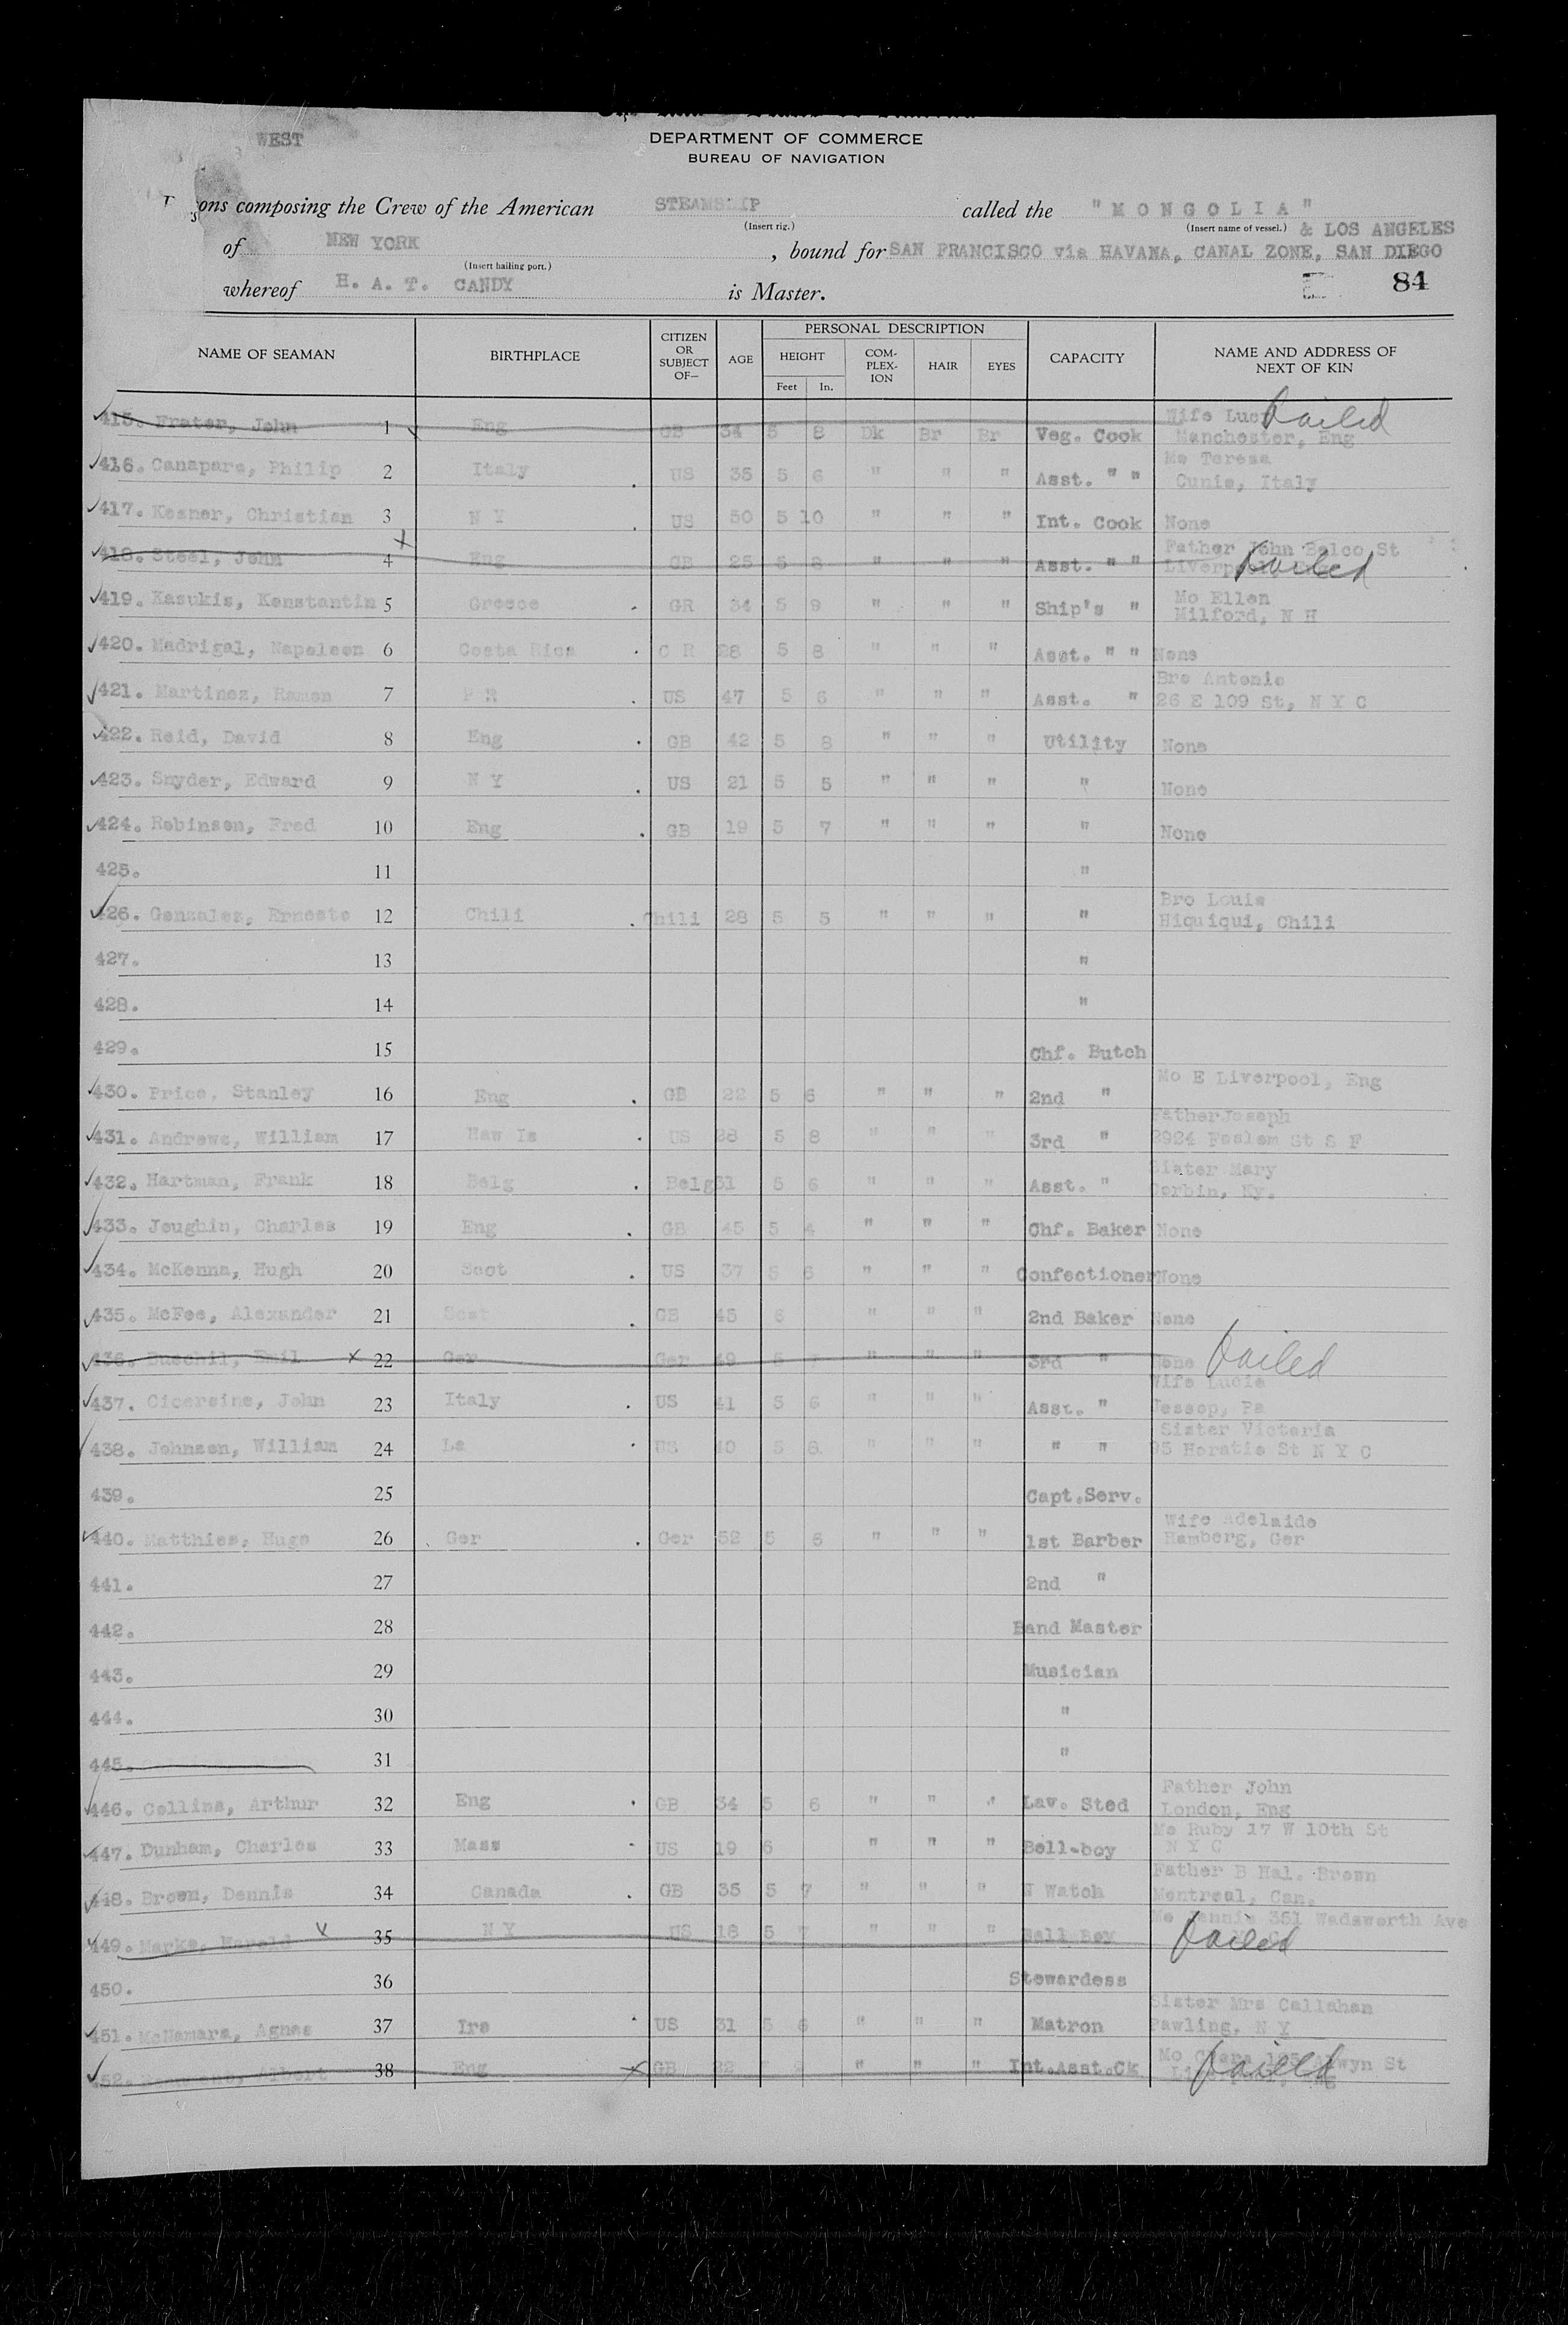 WEST
DEPARTMENT OF COMMERCE
BUREAU OF NAVIGATION
ons composing the Crew of the American STEAMSHIP called the "MONGOLIA"
(Insert rig.) (Insert name of vessel.) & LOS ANGELES
of NEW YORK , bound for SAN FRANCISCO via HAVANA, CANAL ZONE, SAN DIEGO
(Insert hailing port.)
whereof H. A. T. CANDY is Master. 84
NAME OF SEAMAN BIRTHPLACE CITIZEN OR SUBJECT OF— AGE PERSONAL DESCRIPTION HEIGHT Feet In. COM-PLEX-ION HAIR EYES CAPACITY NAME AND ADDRESS OF NEXT OF KIN
415. Frater, John 1 Eng GB 34 5 8 Dk Br Br Veg. Cook Wife Failed
Manchester, Eng
416. Canapara, Philip 2 Italy US 35 5 6 " " " Asst. " " Mo Teresa
Cunis, Italy
417. Kesner, Christian 3 N Y US 50 5 10 " " " Int. Cook None
418. Steel, John 4 Eng GB 25 5 8 " " " Asst. " " Father John St
Failed
419. Kasukis, Konstantin 5 Greece GR 34 5 9 " " " Ship's " Mo Ellen
Milford, N H
420. Madrigal, Napoleon 6 Costa Rica C R 28 5 8 " " " Asst. " " None
421. Martinez, Ramon 7 P R US 47 5 6 " " " Asst. " Bro Antonio
26 E 109 St, N Y C
422. Reid, David 8 Eng GB 42 5 8 " " " Utility None
423. Snyder, Edward 9 N Y US 21 5 5 " " " " None
424. Robinson, Fred 10 Eng GB 19 5 7 " " " " None
425. 11 "
426. Gonzales, Ernesto 12 Chili Chili 28 5 5 " " " " Bro Louis
Hiquiqui, Chili
427. 13 "
428. 14 "
429. 15 Chf. Butch
430. Price, Stanley 16 Eng GB 22 5 6 " " " 2nd " Mo E Liverpool, Eng
431. Andrews, William 17 Haw Is US 28 5 8 " " " 3rd " Father Joseph
2924 St S F
432. Hartman, Frank 18 Belg Belg 31 5 6 " " " Asst. " Sister Mary
Corbin, Ky.
433. Joughin, Charles 19 Eng GB 45 5 4 " " " Chf. Baker None
434. McKenna, Hugh 20 Scot US 37 5 6 " " " Confectioner None
435. McFee, Alexander 21 Scot GB 45 6 " " " 2nd Baker None
436. Emil 22 Ger Ger 49 5 7 " " " 3rd " None Failed
437. Cicersine, John 23 Italy US 41 5 6 " " " Asst. " Wife Lucia
Jessop, Pa
438. Johnson, William 24 La US 40 5 6 " " " " " Sister Victoria
95 Horatio St N Y C
439. 25 Capt.Serv.
440. Matthies, Hugo 26 Ger Ger 52 5 6 " " " 1st Barber Wife Adelaide
Hamberg, Ger
441. 27 2nd "
442. 28 Band Master
443. 29 Musician
444. 30 "
445. 31 "
446. Collins, Arthur 32 Eng GB 34 5 6 " " " Lav. Sted Father John
London, Eng
447. Dunham, Charles 33 Mass US 19 6 " " " Bell-boy Mo Ruby 17 W 10th St
N Y C
448. Brown, Dennis 34 Canada GB 35 5 7 " " " N Watch Father B Hal. Brown
Montreal, Can.
449. Marks, Harold 35 N Y US 18 5 7 " " " Bell Boy Mo 351 Wadsworth Ave
Failed
450. 36 Stewardess
451. McNamara, Agnes 37 Ire US 31 5 6 " " " Matron Sister Mrs Callahan
Pawling, N Y
452. Albert 38 Eng GB 22 " " " Int.Asst.Ck Mo St
Failed